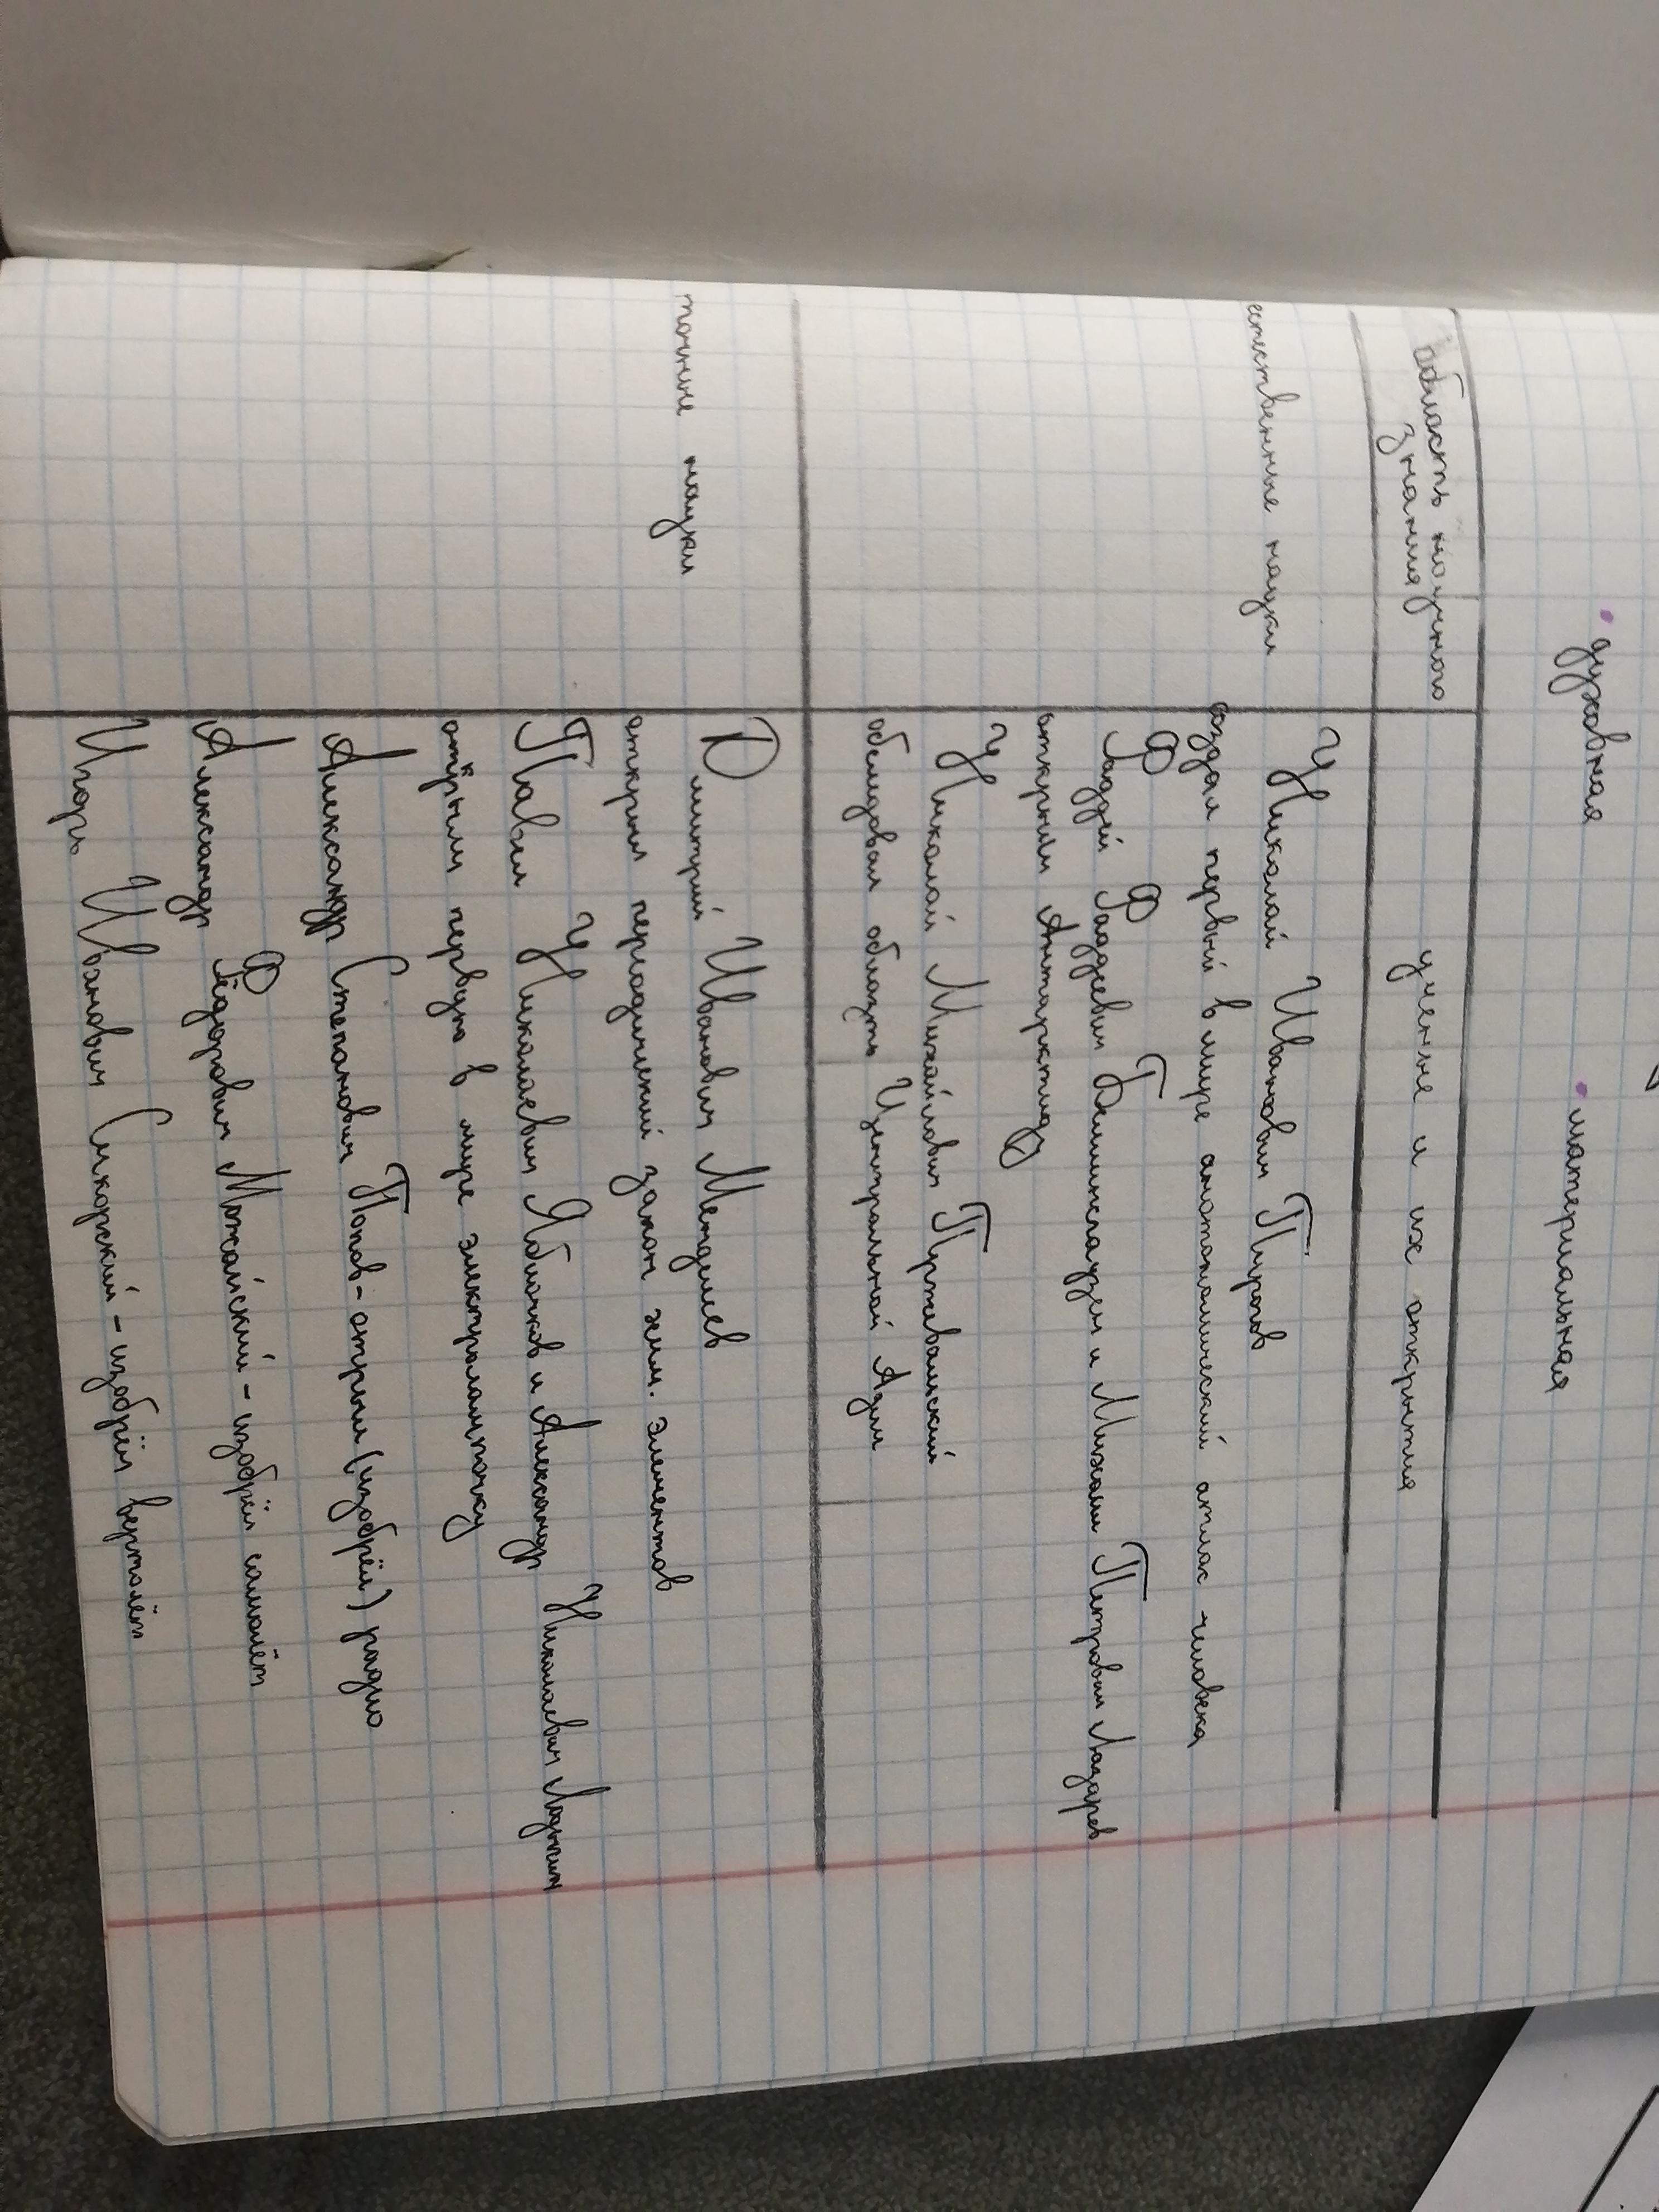 • духовная • материальная
область научного
знания
ученые и их открытия
естественные науки
Николай Иванович Пирогов
создал первый в мире анотомический атлас человека
Фаддей Фаддеевич Беллинсгаузен и Михаил Петрович Лазарев
открыли Антарктиду
Николай Михайлович Пржевальский
обследовал область Центральной Азии
точные науки
Дмитрий Иванович Менделеев
открыл периодический закон хим. элементов
Павел Николаевич Яблочков и Александр Николаевич Лодыгин
открыли первую в мире электролампочку
Александр Степанович Попов - открыл (изобрёл) радио
Александр Фёдорович Можайский - изобрёл самолёт
Игорь Иванович Сикорский - изобрёл вертолёт